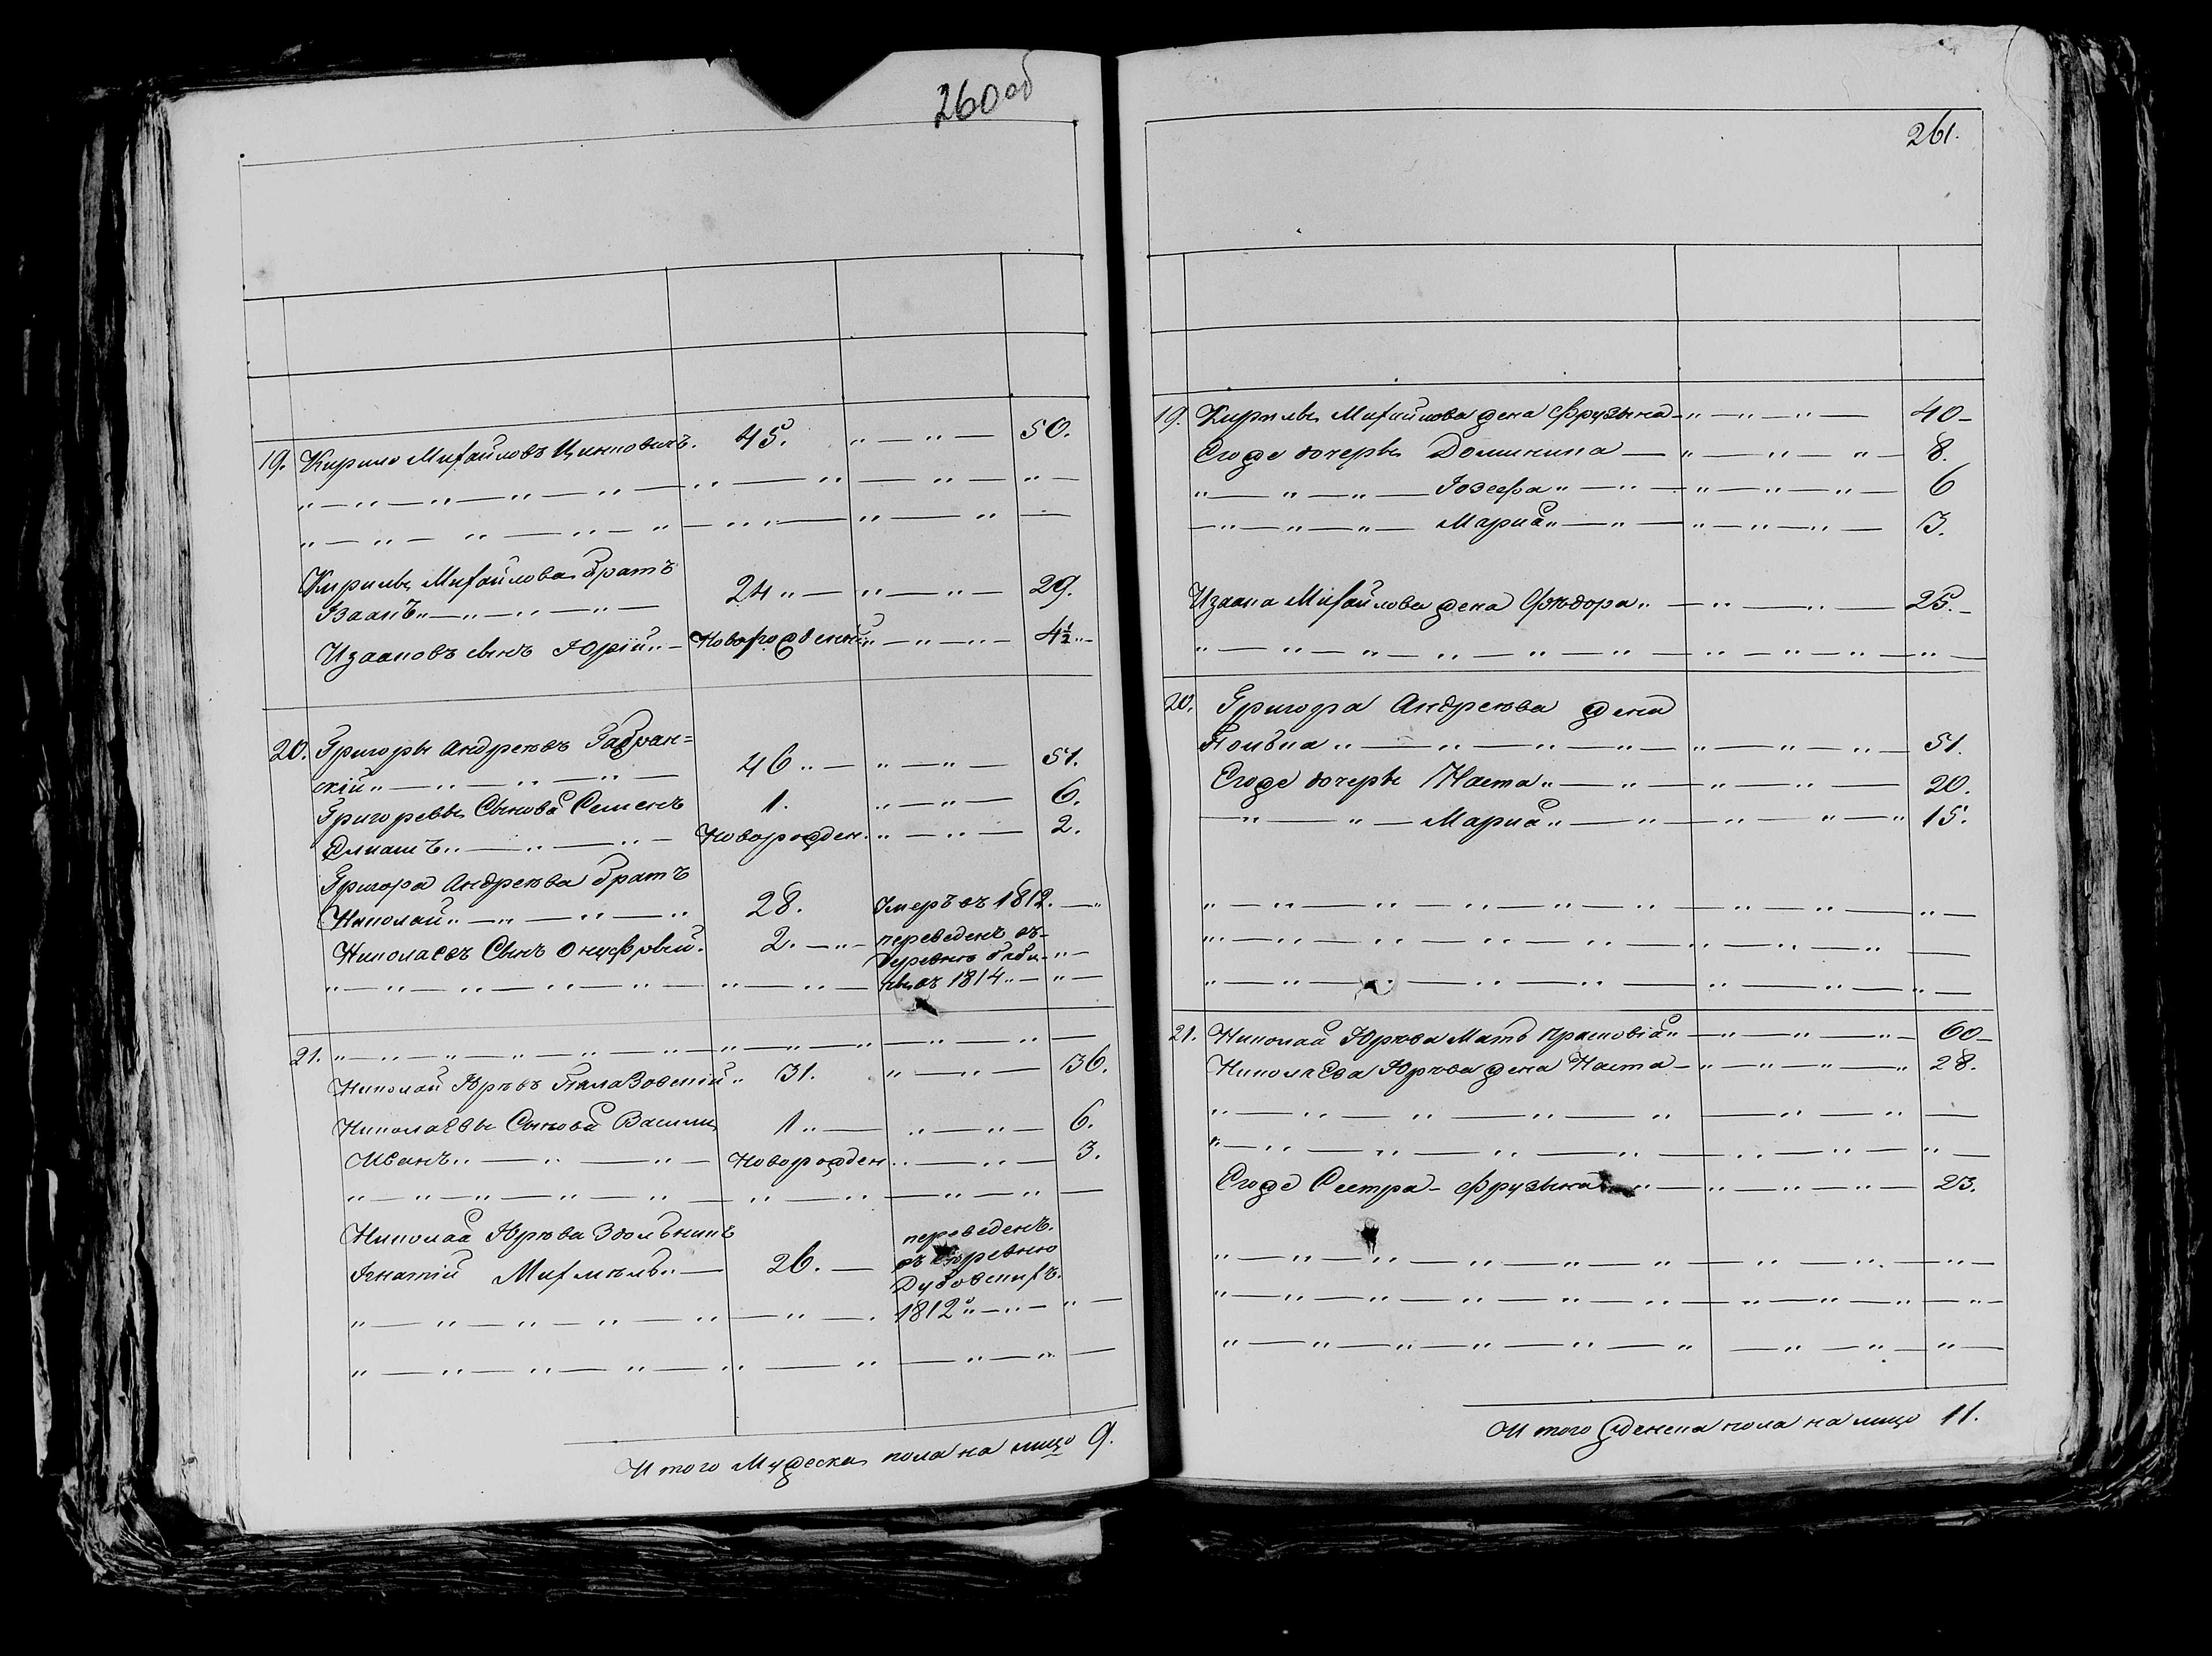 260 об
19. Кирило Михайловъ 45. 50.
Кирилы Михайлова братъ
Изаакъ 24 29.
Изааковъ сынъ Юрій Новорожденный 4½
20. Григоры Андреювъ
скій 46 51.
Григоревы Сыновя Семенъ 1. 6.
Новорожден. 2.
Григора Андреюва братъ
Николай 28. Умеръ въ 1812.
Николаевъ Сынъ Онуфровый. 2. переведенъ въ
деревню
въ 1814
21.
Николай Юрьевъ 31. 36.
Николаевы Сыновя Василий 1 6.
Иванъ Новорожден 3.
Николая Юрьева Здольникъ переведенъ
Игнатій 26. въ деревню
1812
Итого Мужеска пола на лицо 9.
261.
19. Кирилы Михайлова жена Фрузына 40
Егоже дочеры Доминика 8.
Іозефа 6
Мария 3.
Изаака Михайлова жена Ѳеодора 25.
20. Григора Андреюва жена
51.
Егоже дочеры Наста 20.
Мария 15.
21. Николая Юрьева Мать Прасковія 60
Николаева Юрьева жена Наста 28.
Егоже Сестра Фрузына 23.
Итого Женска пола на лицо 11.